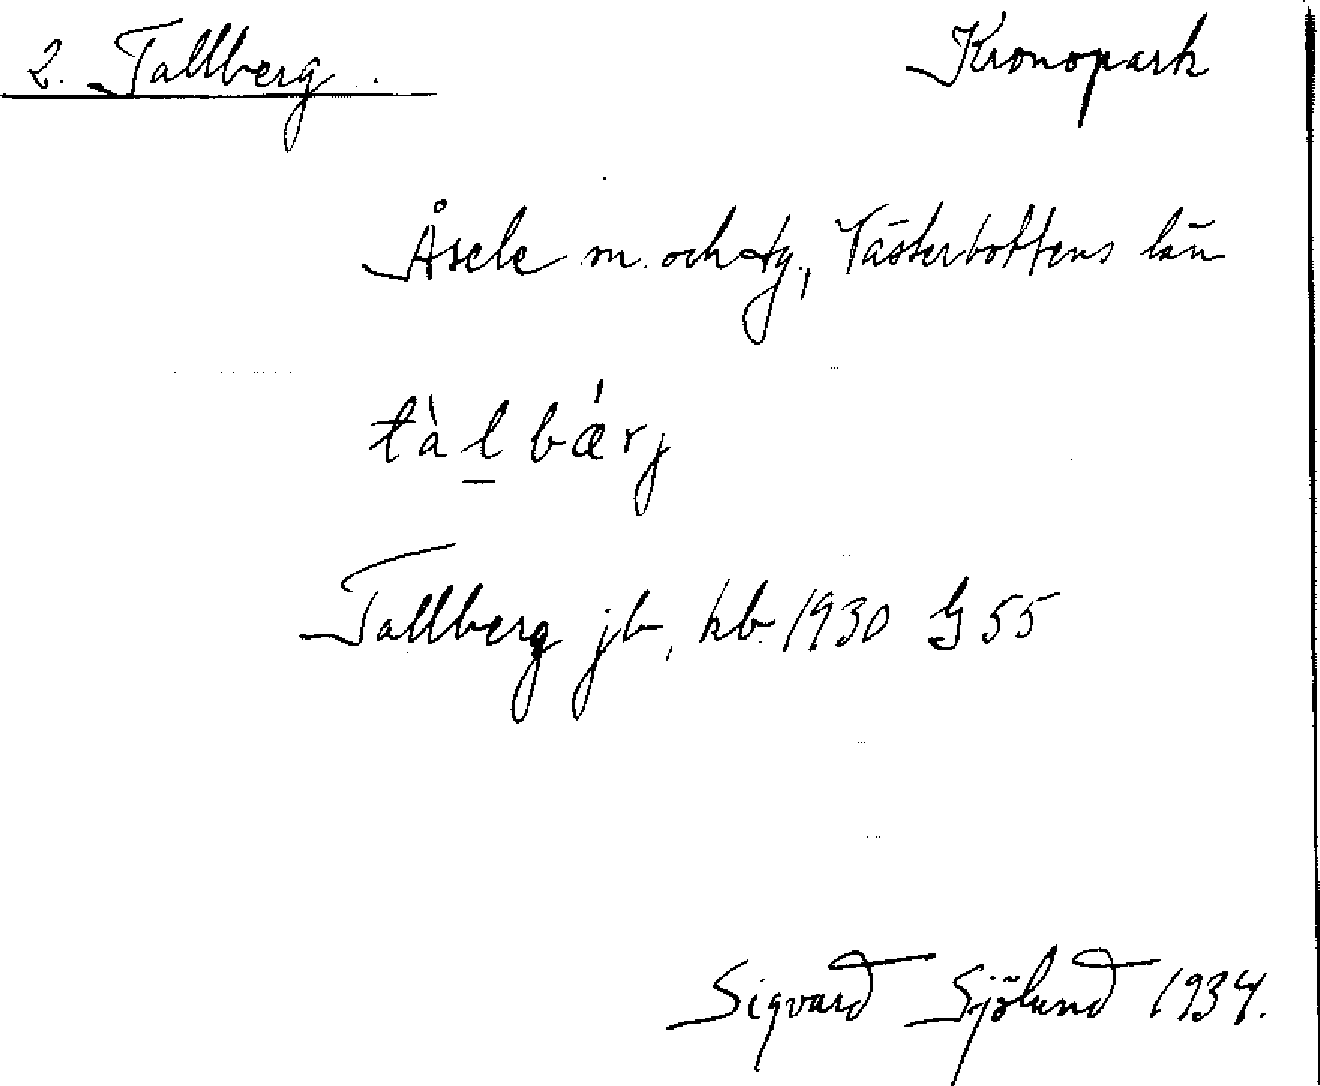 2. Tallberg. Kronopark
Åsele m. och tg., Västerbottens län
tàl̲bǽrj
Tallberg jb, kb. 1930 G 55
Sigvard Sjölund 1934.